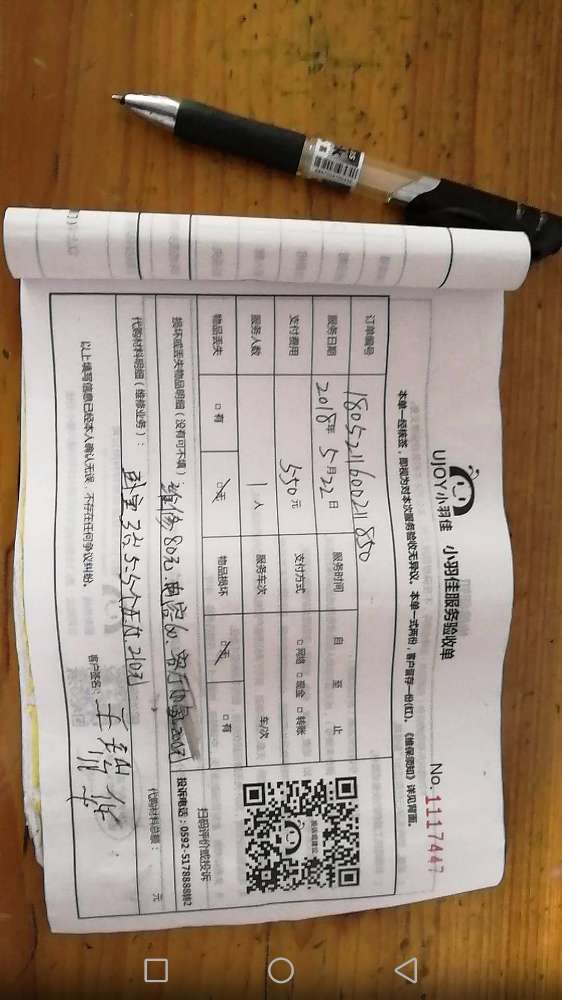 UJOY小羽佳 小羽佳服务验收单 No. 1117447
本单一经核签，即视为对本次服务验收无异议。本单一式两份，客户留存一份(红)。《维保须知》详见背面。
订单编号 180521160021850
服务日期 2018年 5月22日 服务时间 自 至 止
支付费用 550元 支付方式 □网络 □现金 □转账
服务人数 1人 服务车次 车/次
物品丢失 □有 □无 物品损坏 □无 □有
损坏或丢失物品明细（没有可不填）：维修80元
代购材料明细（维修业务）： 210元 代购材料总额： 元
以上填写信息已经本人确认无误，不存在任何争议纠纷。 客户签名：
扫码评价或投诉
投诉电话：0592-5178888转2